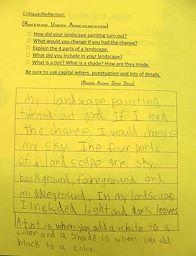 Critique/Reflection:
(Read & re-read Underline Answer one part at a time)
How did your landscape painting turn out?
What would you change if you had the chance?
Explain the 4 parts of a landscape.
What did you include in your landscape?
What is a tint? What is a shade? How are they made.
Be sure to use capital letters, punctuation and lots of details.
(Restate Answer Detail Detail)
My landscape painting
turned out good. If I had
the chance, I would change
my sky. The four parts
of a landscape are, sky,
background, foreground and
middleground. In my landscape
I included light and dark leaves.
A tint is when you add a white to a
color and a shade is when you add
black to a color.